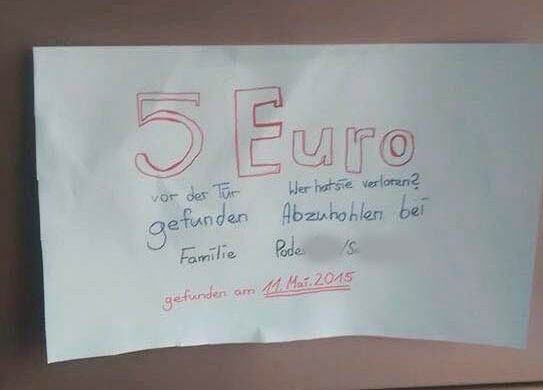 5 Euro
vor der Tür Wer hat sie verloren?
gefunden Abzuhohlen bei
Familie Pode /S.
gefunden am 11. Mai. 2015